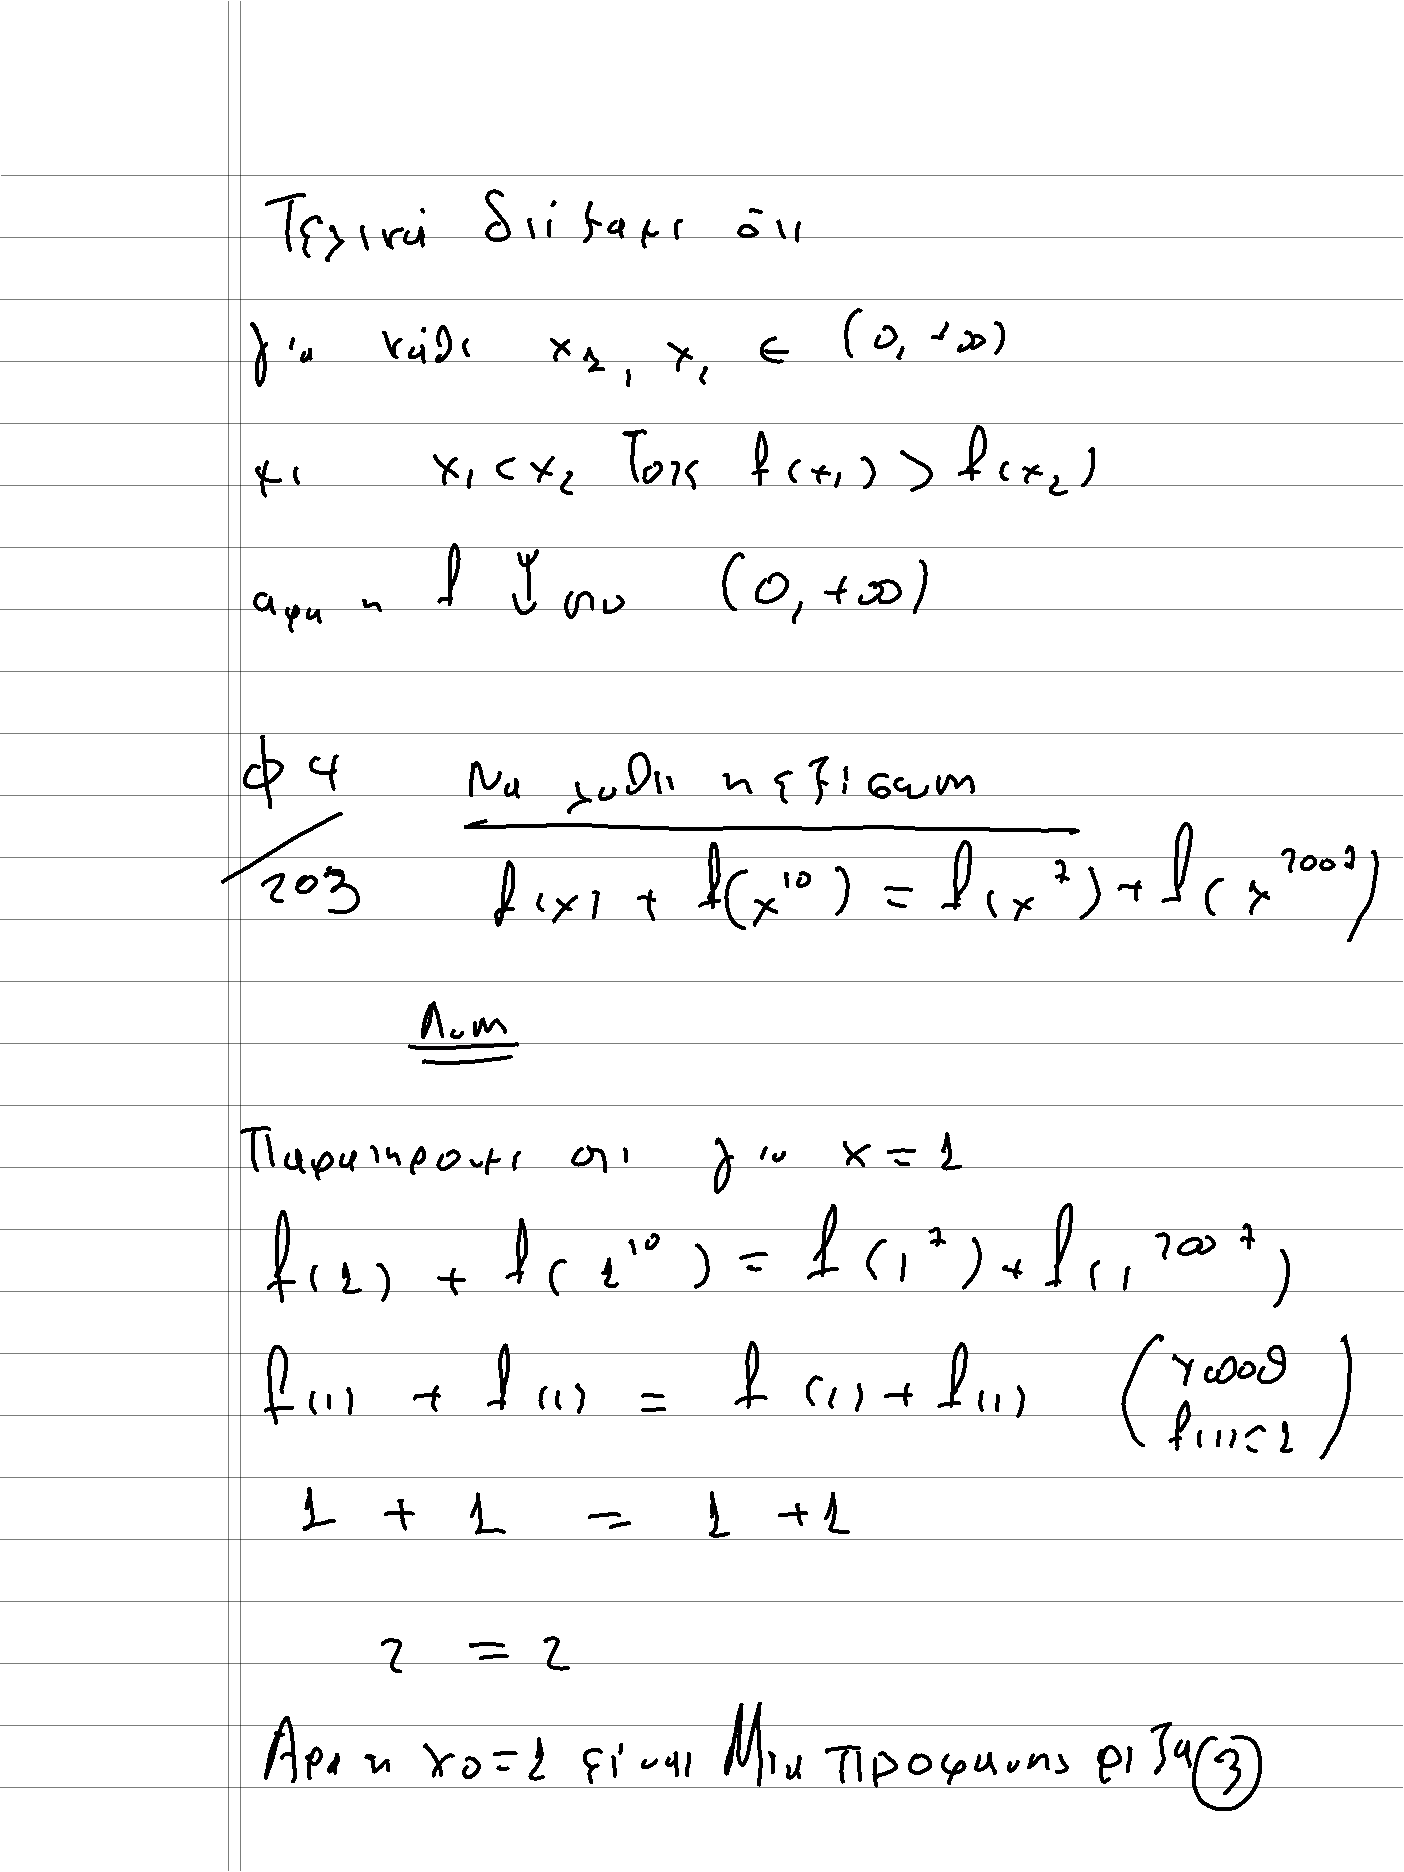 Τελικά δείξαμε ότι
για κάθε x₂, x₁ ∈ (0, +∞)
με x₁ < x₂ τότε f(x₁) > f(x₂)
αρα η f ↓ στο (0, +∞)
Φ 4 Να λυθει η εξίσωση
203 f(x) + f(x¹⁰) = f(x⁷) + f(x²⁰⁰⁷)
Λυση
Παρατηρουμε οτι για x = 1
f(1) + f(1¹⁰) = f(1⁷) + f(1²⁰⁰⁷)
f(1) + f(1) = f(1) + f(1) (
f(1)=1)
1 + 1 = 1 + 1
2 = 2
Αρα η x₀=1 είναι Μια Προφανης ριζα ③